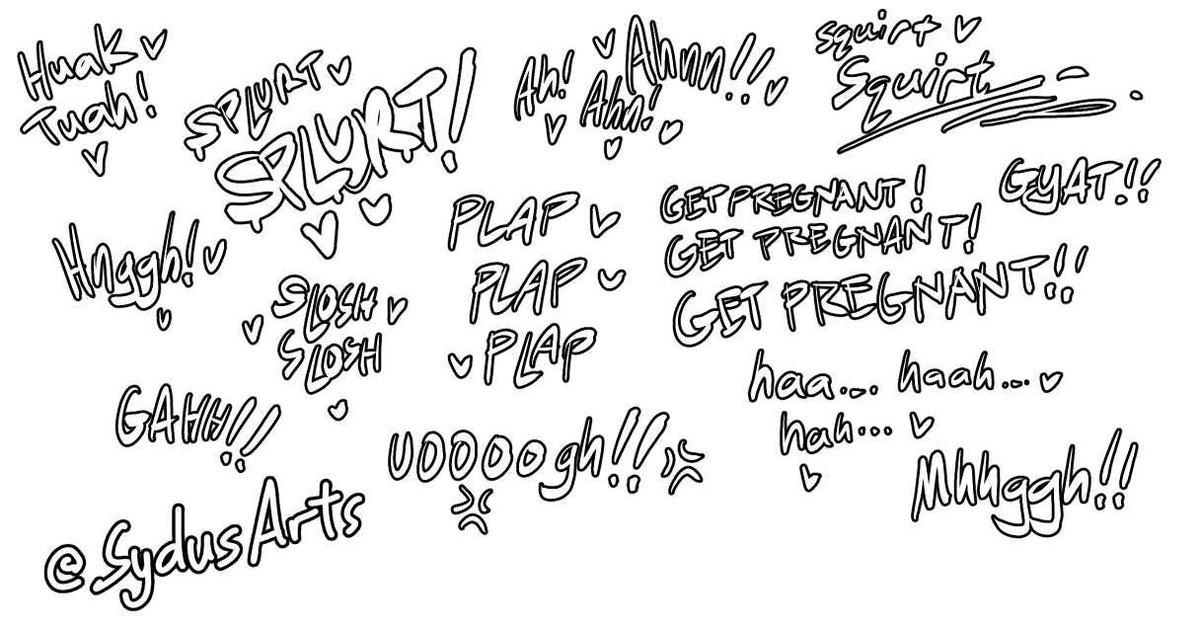 Huak
Tuah!
SPLURT
SPLURT!
Ah!
Ahn!
Ahnn!!
squirt
Squirt
Hnggh!
SLOSH
SLOSH
PLAP
PLAP
PLAP
GET PREGNANT!
GET PREGNANT!
GET PREGNANT!!
GYAT!!
GAHH!!
UOOOOgh!!
haa... haah...
hah...
Mhhggh!!
@SydusArts